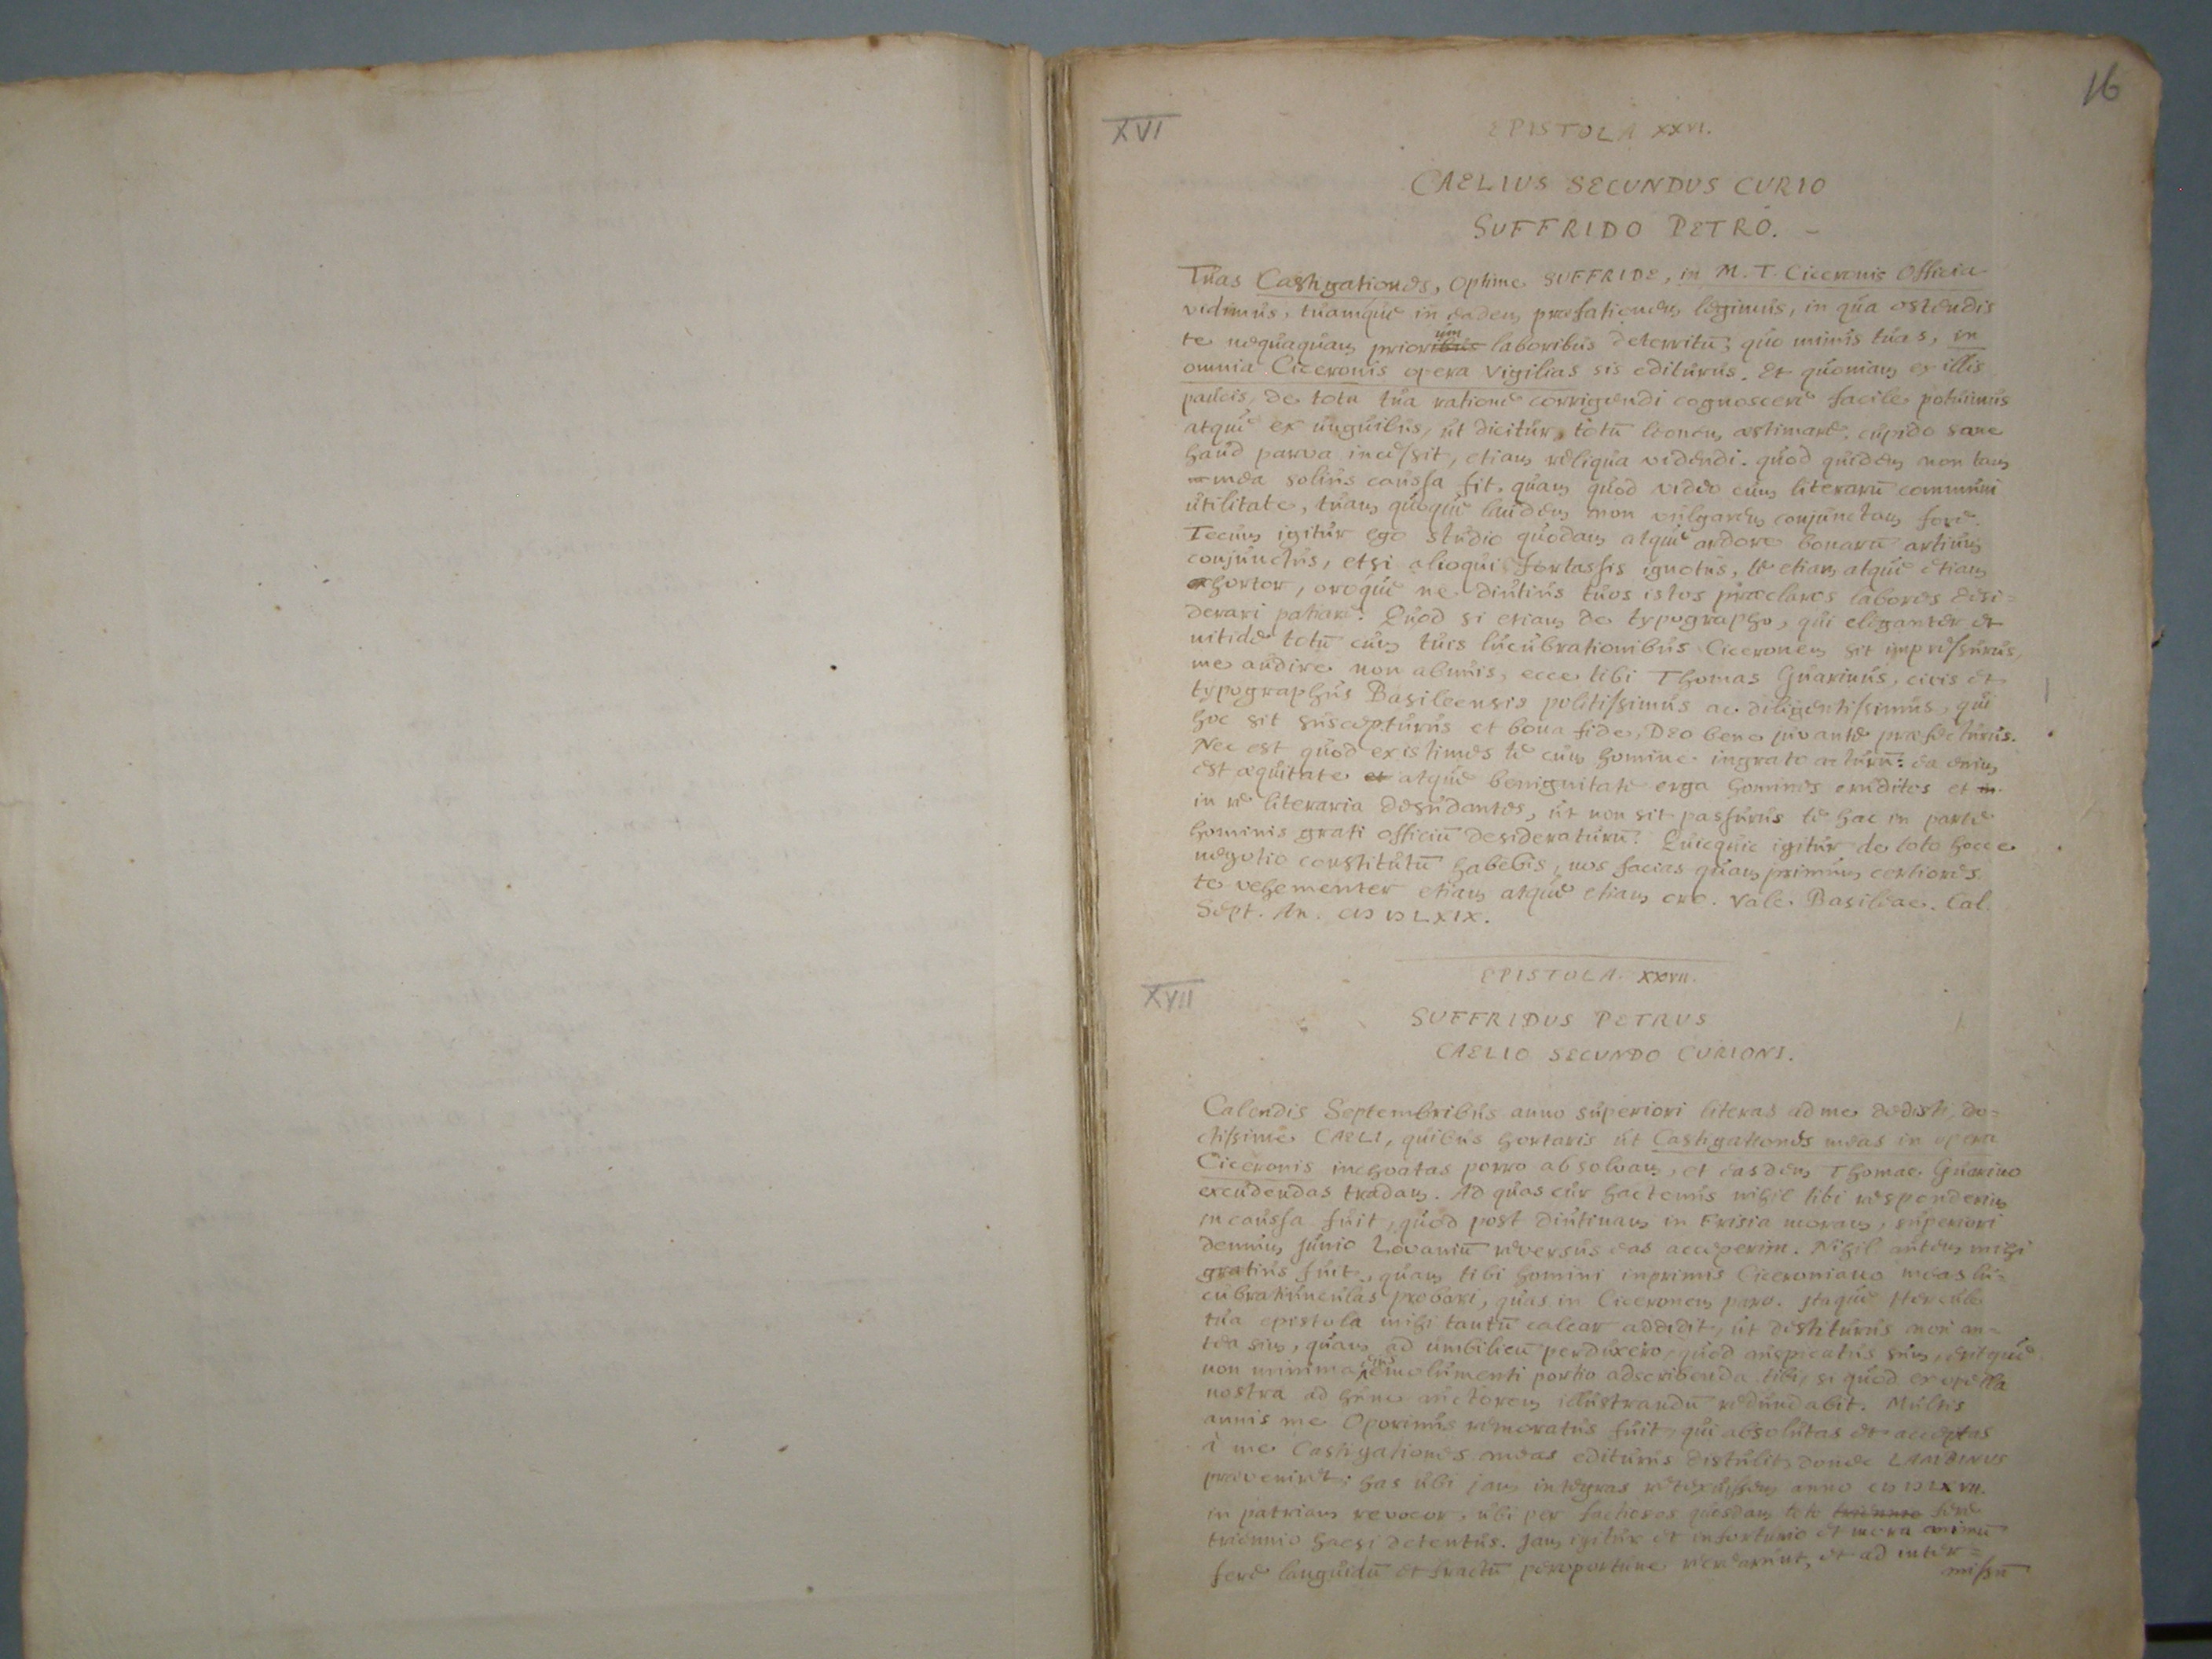 16
XVI
EPISTOLA XXVI.
CAELIUS SECUNDUS CURIO
SUFFRIDO PETRO. –
Tuas Castigationes, Optime SUFFRIDE, in M. T. Ciceronis Officia
vidimus, tuamque in eadem praefationem legimus, in qua ostendis
te nequaquam prioribus um laboribus deterritū, quo minus tuas, in
omnia Ciceronis opera vigilias sis editurus. Et quoniam ex illis
paucis, de tota tua ratione corrigendi cognoscere facile potuimus
atque ex unguibus, ut dicitur, totū leonem aestimare, cupido sane
haud parva incessit, etiam reliqua videndi. quod quidem non tam
mea solius caussa fit, quam quod video cum literarū communi
utilitate, tuam quoque laudem non vulgarem conjunctam fore.
Tecum igitur ego studio quodam atque ardore bonarū artium
conjunctus, etsi alioqui fortassis ignotus, te etiam atque etiam
exhortor, oroque ne diutius tuos istos praeclaros labores desi=
derari patiare. Quod si etiam de typographo, qui eleganter et
nitide totū cum tuis lucubrationibus Ciceronem sit impressurus,
me audire non abnuis, ecce tibi Thomas Guarinus, civis et
typographus Basileensis politissimus ac diligentissimus, qui
hoc sit suscepturus et bona fide, Deo bene juvante praefecturus.
Nec est quod existimes te cum homine ingrato acturū: ea enim
est aequitate et atque benignitate erga homines eruditos et in
in re literaria desudantes, ut non sit passurus te hac in parte
hominis grati officiū desideraturū. Quicquic igitur de toto hocce
negotio constitutū habebis, nos facias quam primum certiores
te vehementer etiam atque etiam oro. Vale. Basileae. Cal.
Sept. An. CIↃ IↃ LXIX.
XVII
EPISTOLA XXVII.
SUFFRIDUS PETRUS
CAELIO SECUNDO CURIONI.
Calendis Septembribus anno superiori literas ad me dedisti, do=
ctissime CAELI, quibus hortaris ut Castigationes meas in opera
Ciceronis inchoatas porro absolvam, et easdem Thomae Guarino
excudendas tradam. Ad quas cur hactenus nihil tibi responderim
in caussa fuit, quod post diutinam in Frisia moram, superiori
demum Junio Lovaniū reversus eas acceperim. Nihil autem mihi
gratius fuit, quam tibi homini inprimis Ciceroniano meas lu=
cubratiunculas probari, quas in Ciceronem paro. Itaque Hercule
tua epistola mihi tantū calcar addidit, ut destiturus non an=
tea sim, quam ad umbilicū perduxero, quod auspicatus sum, eritque
non minima ejus emolumenti portio adscribenda tibi, si quod ex opella
nostra ad hunc auctorem illustrandū redundabit. Multis
annis me Oporinus remoratus fuit, qui absolutas et acceptas
à me Castigationes meas editurus distulit, donec LAMBINUS
praeveniret; has ubi jam integras retexuissem anno CIↃ IↃ LXVII.
in patriam revocor, ubi per factiosos quosdam toto triennio fere
triennio haesi detentus. Jam igitur et infortunio et mora animū
fere languidū et fractū peropportune recrearunt, et ad inter=
missū